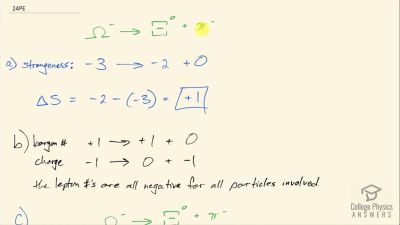 24PE
Ω⁻ → Ξ⁰ + π⁻
a) strangeness: -3 → -2 + 0
ΔS = -2 - (-3) = +1
b) baryon # +1 → +1 + 0
charge -1 → 0 + -1
the lepton #'s are all negative for all particles involved.
c) Ω⁻ → Ξ⁰ + π⁻
College Physics
ANSWERS